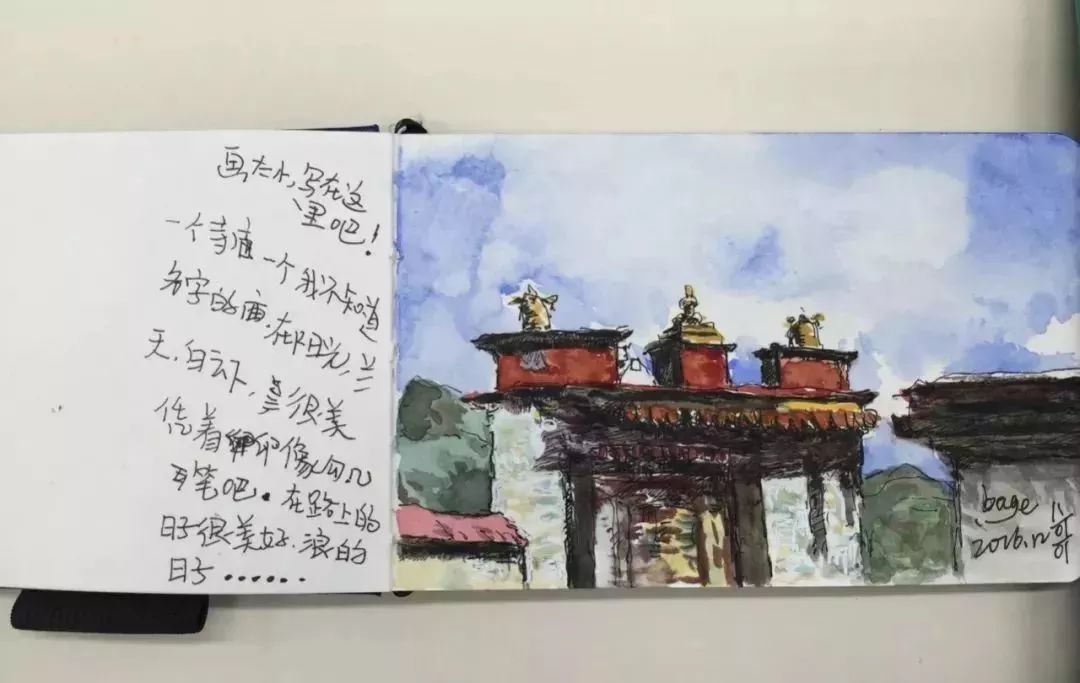 画太小,写在这
里吧!
一个寺庙一个我不知道
名字的庙.在阳光,兰
天,白云下,真很美
凭着印像勾几
笔吧.在路上的
日子很美好.浪的
日子......
bage 八哥
2016.12